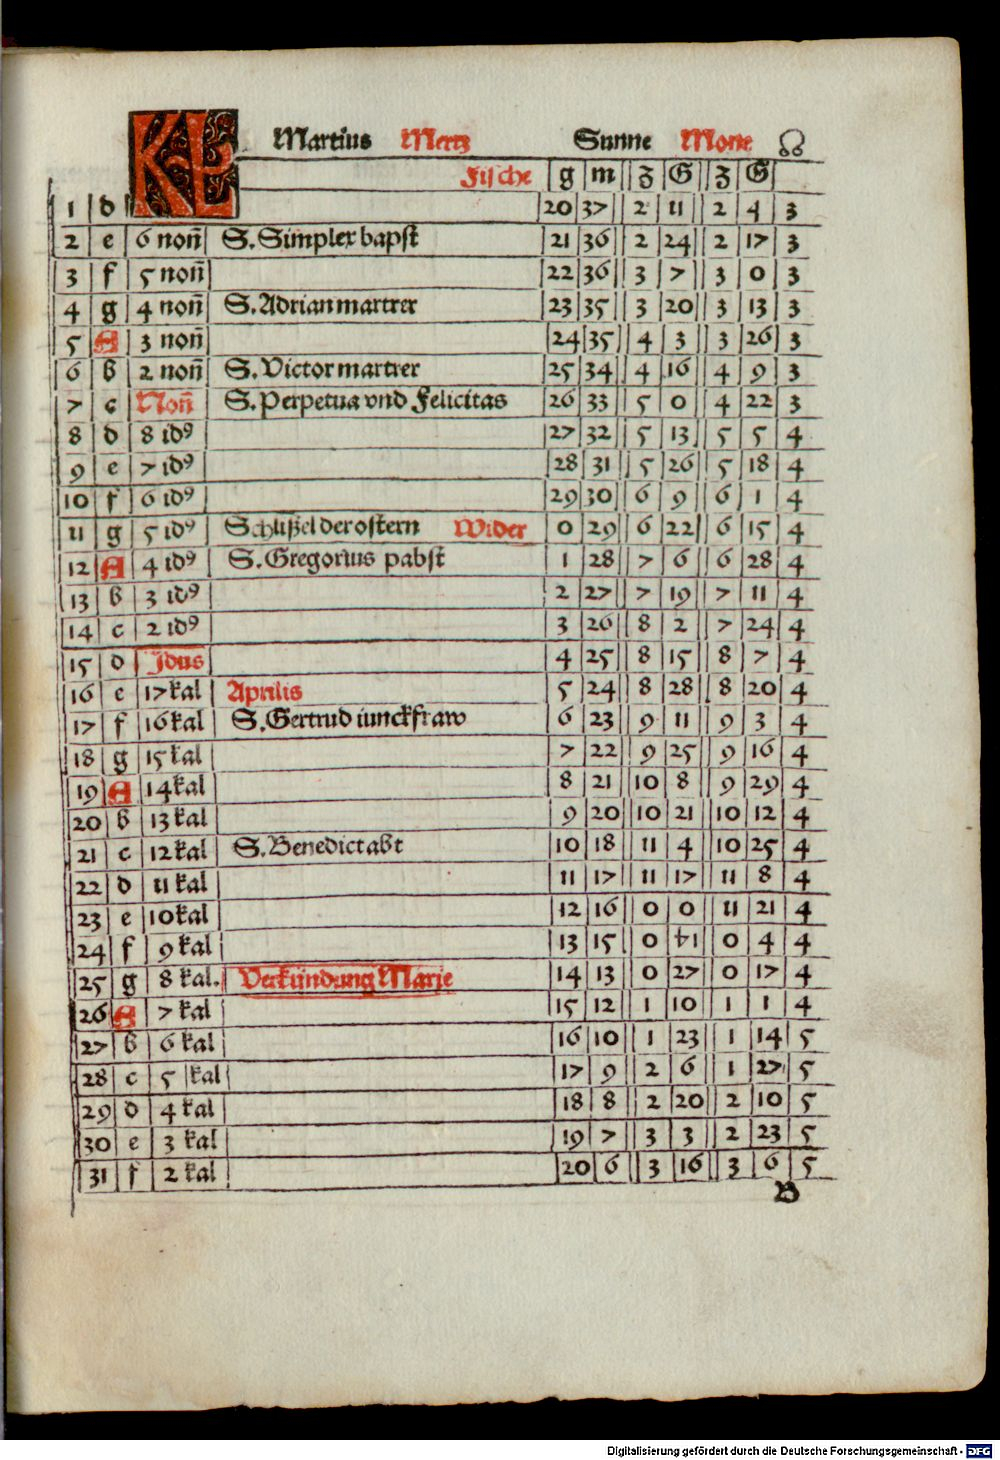 KL Martius Mertz Sunne Mone ☊
Fische g m Z G Z G
1 d 20 37 2 11 2 4 3
2 e 6 noñ S. Simplex bapst 21 36 2 24 2 17 3
3 f 5 noñ 22 36 3 7 3 0 3
4 g 4 noñ S. Adrian martrer 23 35 3 20 3 13 3
5 A 3 noñ 24 35 4 3 3 26 3
6 b 2 noñ S. Victor martrer 25 34 4 16 4 9 3
7 c Noñ S. Perpetua vnd Felicitas 26 33 5 0 4 22 3
8 d 8 idꝰ 27 32 5 13 5 5 4
9 e 7 idꝰ 28 31 5 26 5 18 4
10 f 6 idꝰ 29 30 6 9 6 1 4
11 g 5 idꝰ Schlüßel der ostern Wider 0 29 6 22 6 15 4
12 A 4 idꝰ S. Gregorius pabst 1 28 7 6 6 28 4
13 b 3 idꝰ 2 27 7 19 7 11 4
14 c 2 idꝰ 3 26 8 2 7 24 4
15 d Jdus 4 25 8 15 8 7 4
16 e 17 kal Aprilis 5 24 8 28 8 20 4
17 f 16 kal S. Gertrud iunckfraw 6 23 9 11 9 3 4
18 g 15 kal 7 22 9 25 9 16 4
19 A 14 kal 8 21 10 8 9 29 4
20 b 13 kal 9 20 10 21 10 12 4
21 c 12 kal S. Benedict abt 10 18 11 4 10 25 4
22 d 11 kal 11 17 11 17 11 8 4
23 e 10 kal 12 16 0 0 11 21 4
24 f 9 kal 13 15 0 14 0 4 4
25 g 8 kal. Verkündung Marie 14 13 0 27 0 17 4
26 A 7 kal 15 12 1 10 1 1 4
27 b 6 kal 16 10 1 23 1 14 5
28 c 5 kal 17 9 2 6 1 27 5
29 d 4 kal 18 8 2 20 2 10 5
30 e 3 kal 19 7 3 3 2 23 5
31 f 2 kal 20 6 3 16 3 6 5
B
Digitalisierung gefördert durch die Deutsche Forschungsgemeinschaft - DFG